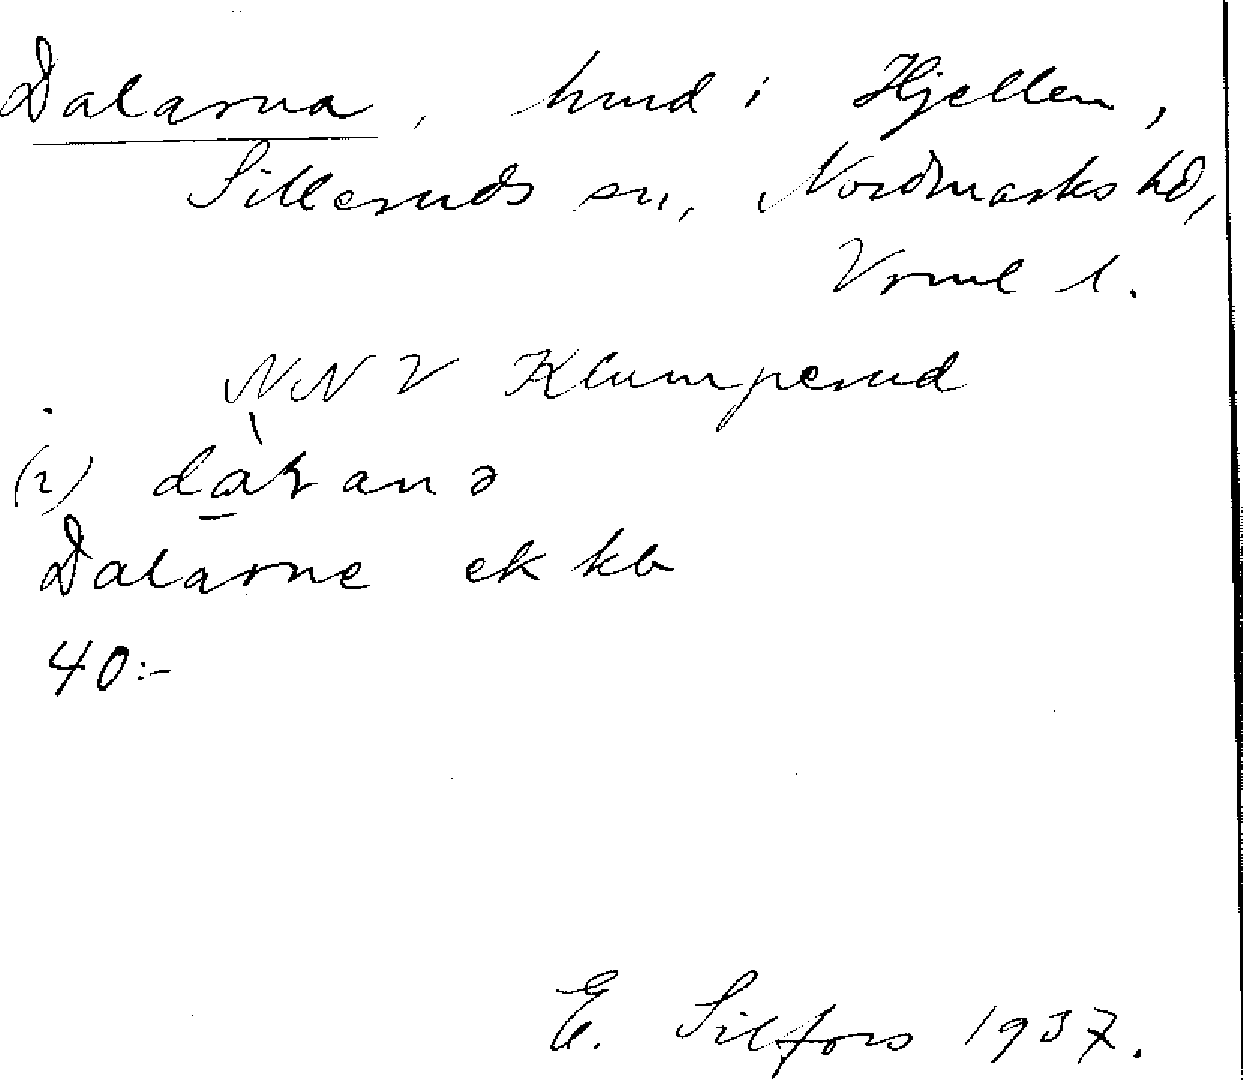 Dalarna, hmd i Hjellen,
Silleruds sn, Nordmarks hd,
Vrml l.
NNV Klumperud
(2) dàɽanə
Dalarne ek kb
40:-
E. Silfors 1937.